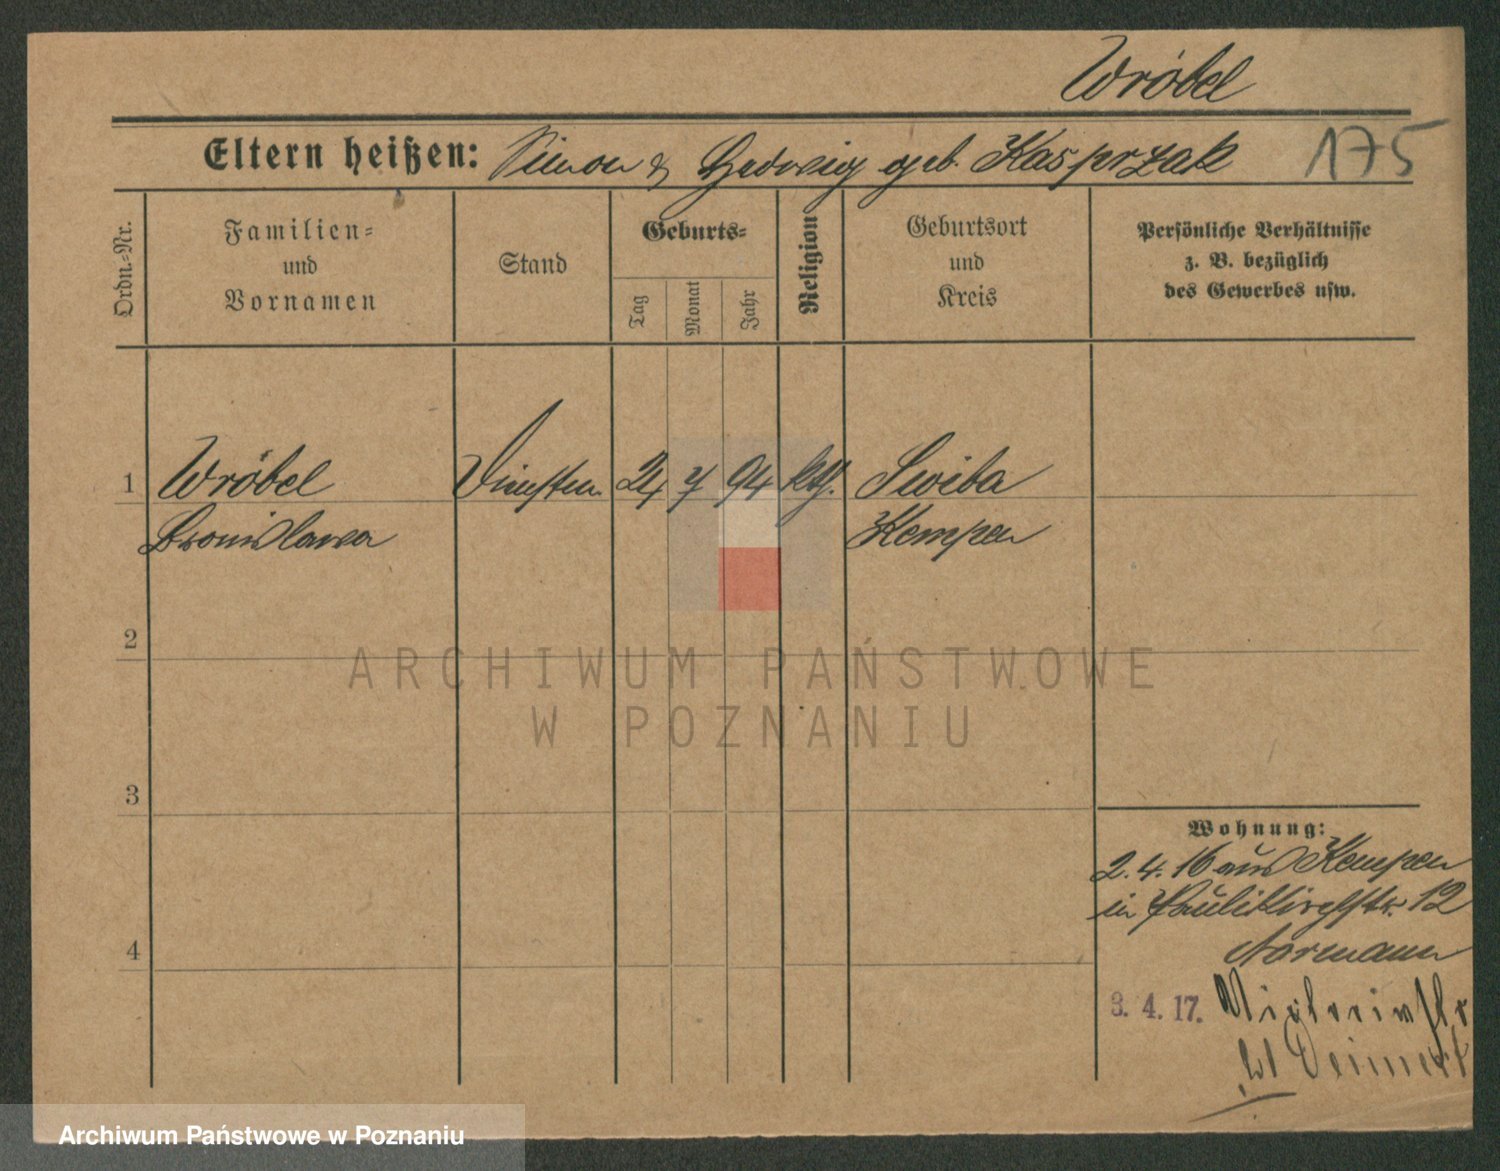 Wróbel
Eltern heißen: Simon & Hedwig geb. Kasprzak 175
Ordn.=Nr.
Familien=
und
Vornamen
Stand
Geburts=
Tag
Monat
Jahr
Religion
Geburtsort
und
Kreis
Persönliche Verhältnisse
z. B. bezüglich
des Gewerbes usw.
1 Wróbel 24 7 94 kth. Swiba
Bronislawa Kempen
2
3
4
Wohnung:
2. 4. 16 aus Kempen
in Paulikirchstr. 12
3. 4. 17. Viktoriastr
ARCHIWUM PAŃSTWOWE
W POZNANIU
Archiwum Państwowe w Poznaniu